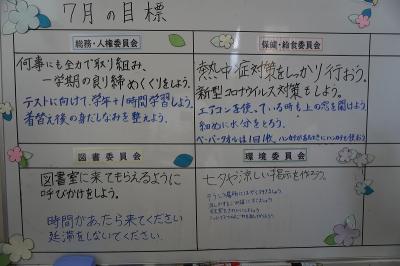 7月の目標
総務・人権委員会
何事にも全力で取り組み、
一学期の良り締めくくりをしよう。
テストに向けて、学年+1時間学習しよう。
着替え後の身だしなみを整えよう。
保健・給食委員会
熱中症対策をしっかり行おう。
新型コロナウイルス対策もしよう。
エアコンを使っている時も上の窓を開けよう
細めに水分をとろう。
ペーパータオルは1回1枚、ハンカチがあるときにハンカチを使おう
図書委員会
図書室に来てもらえるように
呼びかけをしよう。
時間があったら来てください
延滞をしないでください。
環境委員会
七夕や涼しい掲示を作ろう。